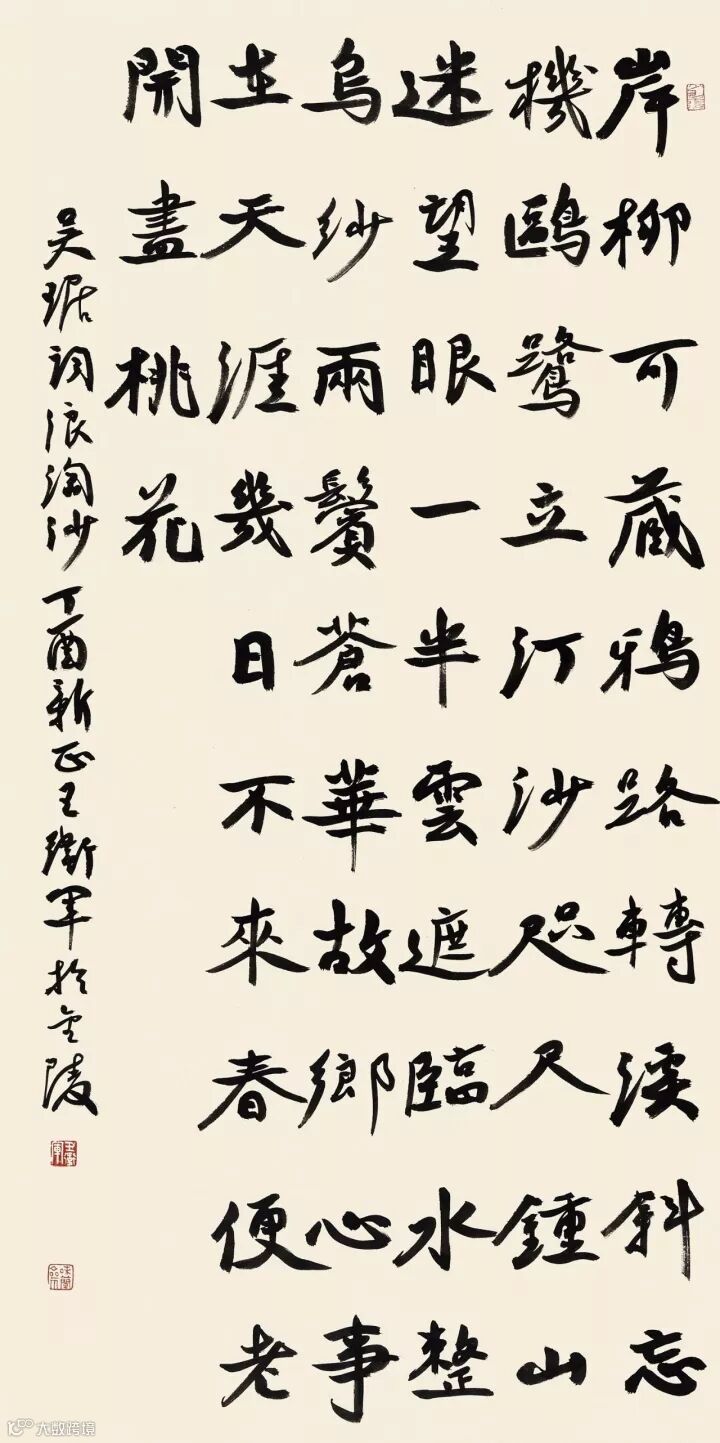 岸柳可藏鴉路轉溪斜忘
機鷗鷺立汀沙咫尺鍾山
迷望眼一半雲遮臨水整
烏紗兩鬢蒼華故鄉心事
在天涯幾日不來春便老
開盡桃花
吳琚詞浪淘沙丁酉新正王衛軍於金陵
大数跨境